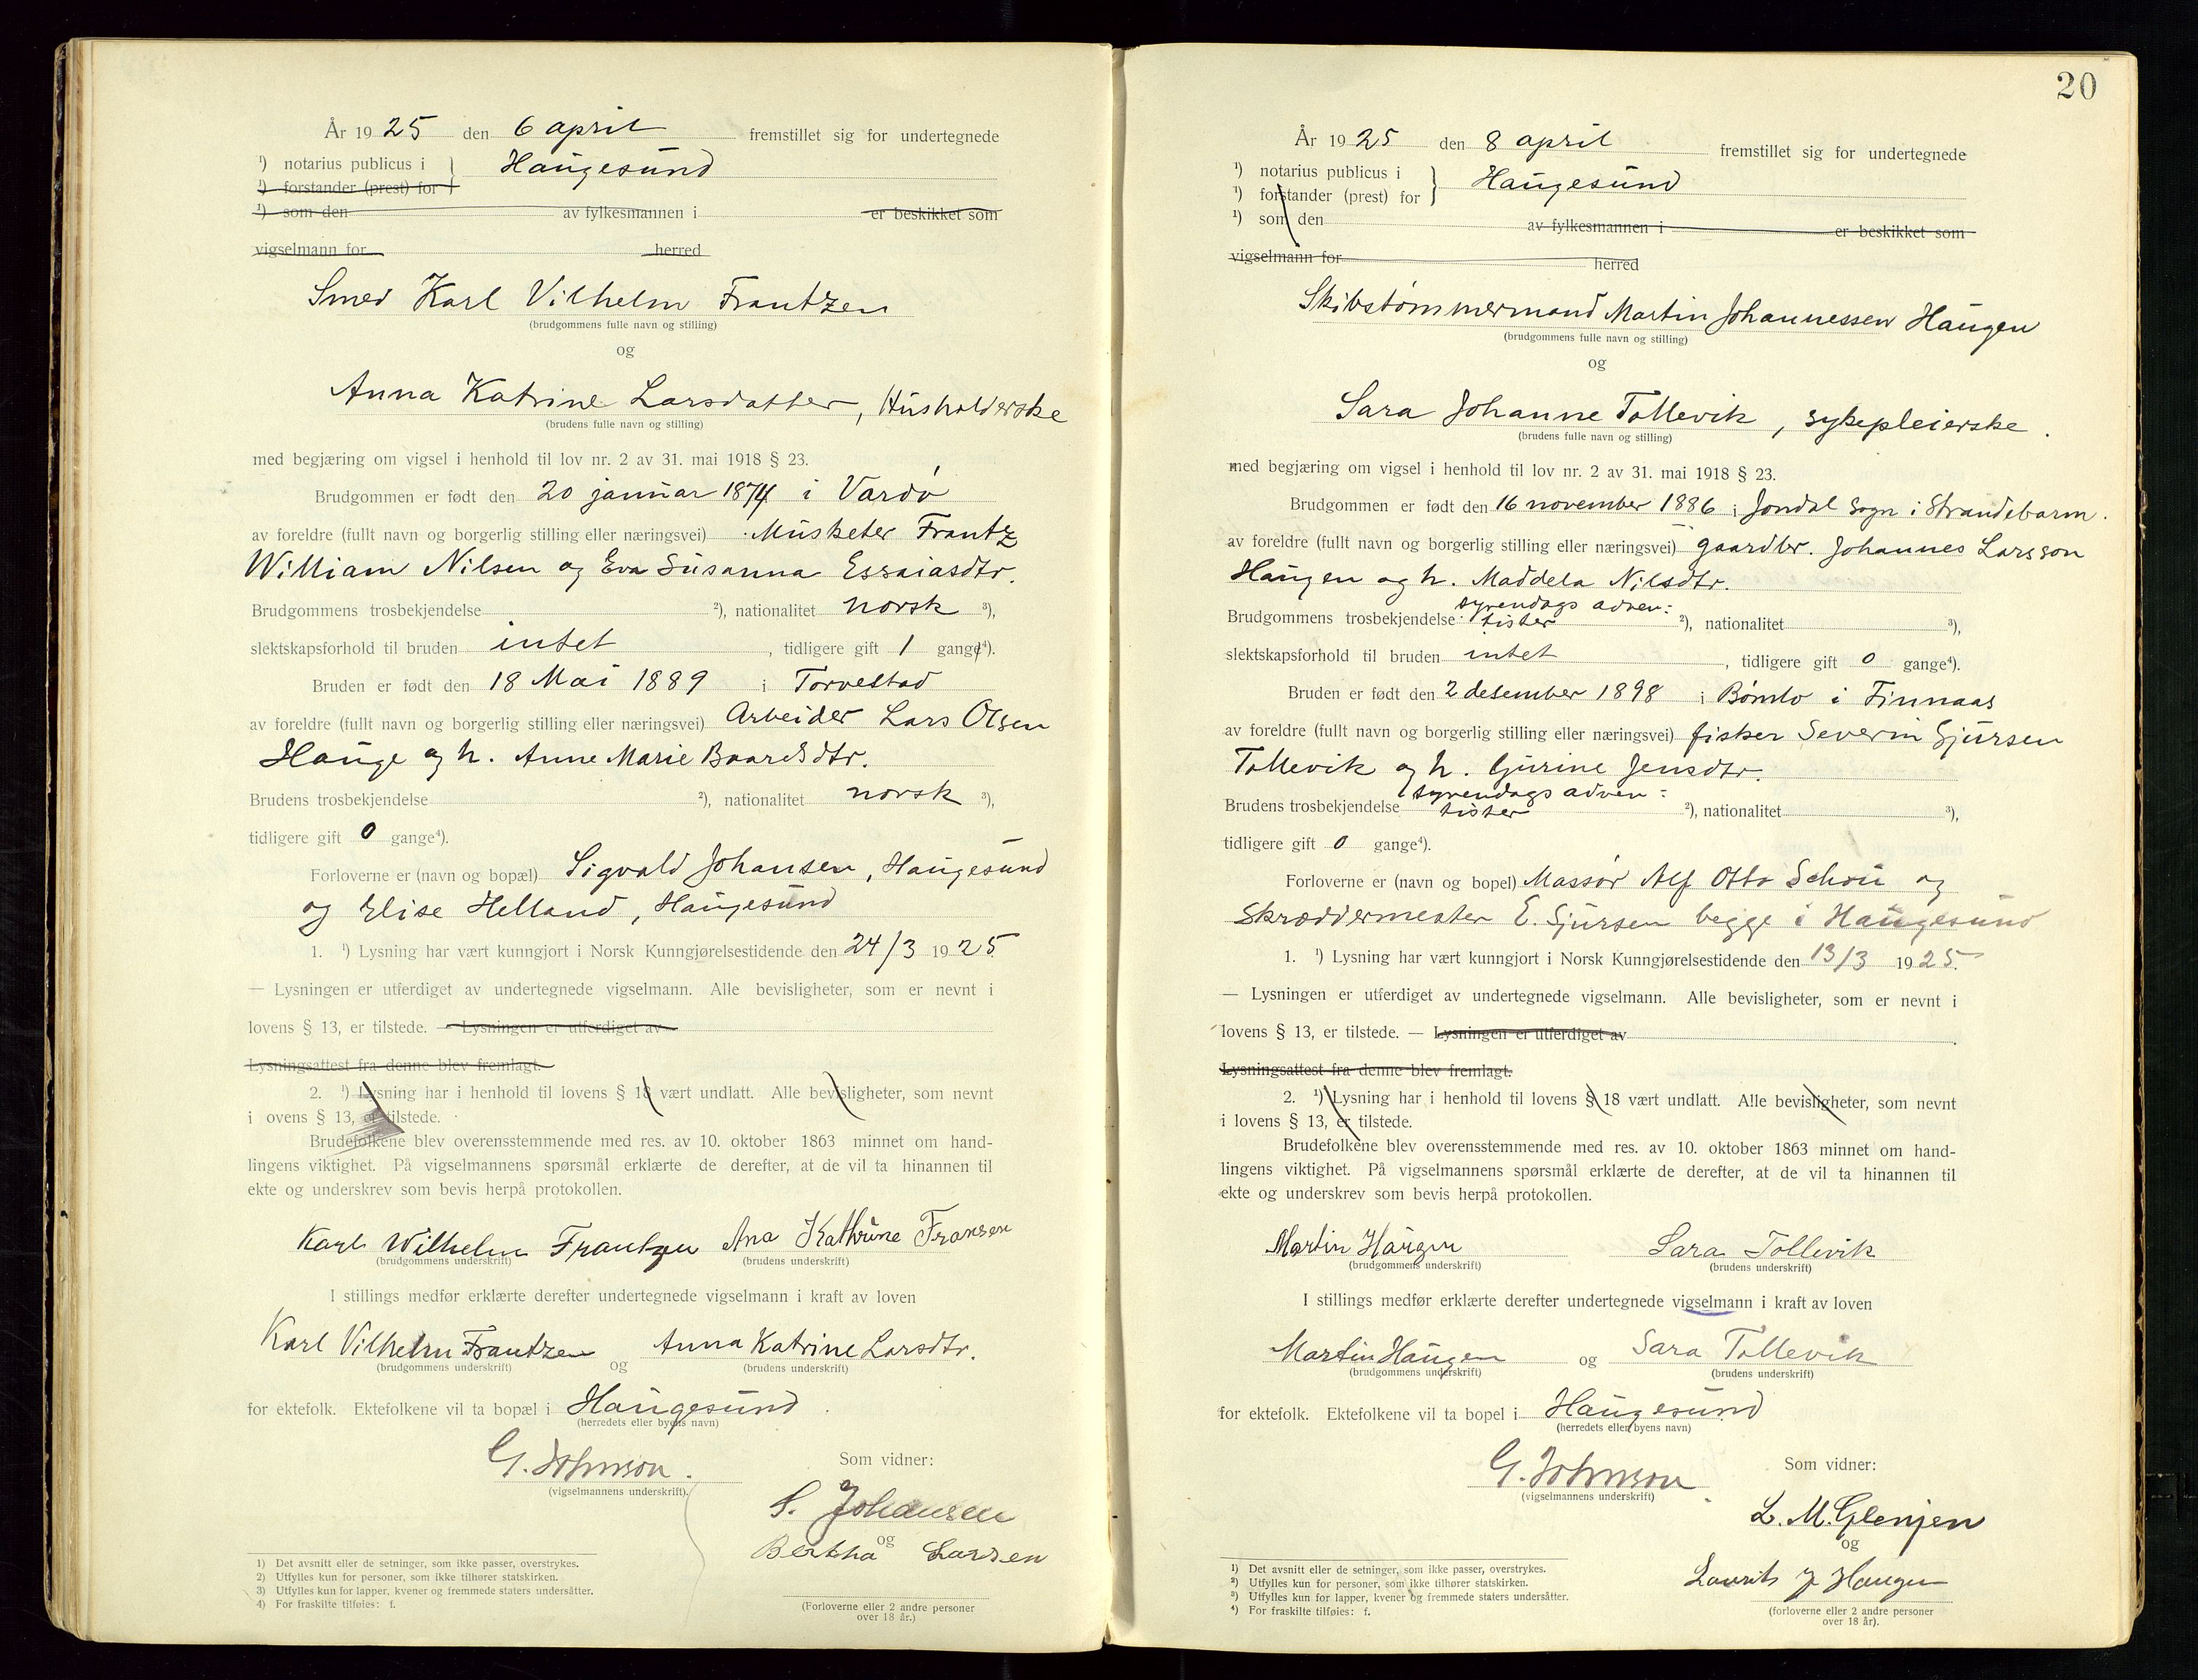 År 1925 den 6 april fremstillet sig for undertegnede
¹) notarius publicus i } Haugesund
¹) forstander (prest) for
¹) som den av fylkesmannen i er beskikket som
vigselmann for herred
Smed Karl Vilhelm Frantzen
(brudgommens fulle navn og stilling)
og
Anna Katrine Larsdatter, Husholderske
(brudens fulle navn og stilling)
med begjæring om vigsel i henhold til lov nr. 2 av 31. mai 1918 § 23.
Brudgommen er født den 20 januar 1874 i Vardö
av foreldre (fullt navn og borgerlig stilling eller næringsvei) Musketer Frantz
William Nilsen og Eva Susanna Essaiasdtr.
Brudgommens trosbekjendelse ²), nationalitet norsk ³),
slektskapsforhold til bruden intet, tidligere gift 1 gange⁴).
Bruden er født den 18 Mai 1889 i Torvestad
av foreldre (fullt navn og borgerlig stilling eller næringsvei) Arbeider Lars Olsen
Hauge og h. Anne Marie Baardsdtr.
Brudens trosbekjendelse ²), nationalitet norsk ³),
tidligere gift 0 gange⁴).
Forloverne er (navn og bopæl) Sigvald Johansen, Haugesund
og Elise Helland, Haugesund
1. ¹) Lysning har vært kunngjort i Norsk Kunngjørelsestidende den 24/3 1925.
— Lysningen er utferdiget av undertegnede vigselmann. Alle bevisligheter, som er nevnt i
lovens § 13, er tilstede. — Lysningen er utferdiget av
Lysningsattest fra denne blev fremlagt.
2. ¹) Lysning har i henhold til lovens § 18 vært undlatt. Alle bevisligheter, som nevnt
i ovens § 13, er tilstede.
Brudefolkene blev overensstemmende med res. av 10. oktober 1863 minnet om hand-
lingens viktighet. På vigselmannens spørsmål erklærte de derefter, at de vil ta hinannen til
ekte og underskrev som bevis herpå protokollen.
Karl Wilhelm Frantzen Ana Kathrine Fransen
(brudgommens underskrift) (brudens underskrift)
I stillings medfør erklærte derefter undertegnede vigselmann i kraft av loven
Karl Vilhelm Frantzen og Anna Katrine Larsdtr.
(brudgommens underskrift) (brudens underskrift)
for ektefolk. Ektefolkene vil ta bopæl i Haugesund.
(herredets eller byens navn)
G. Johnson.
(vigselmannens underskrift).
Som vidner:
S. Johansen
og
Bertha Larsen
(Forloverne eller 2 andre personer
over 18 år.)
1) Det avsnitt eller de setninger, som ikke passer, overstrykes.
2) Utfylles kun for personer, som ikke tilhører statskirken.
3) Utfylles kun for lapper, kvener og fremmede staters undersåtter.
4) For fraskilte tilføies: f.
20
År 1925 den 8 april fremstillet sig for undertegnede
¹) notarius publicus i } Haugesund
¹) forstander (prest) for
¹) som den av fylkesmannen i er beskikket som
vigselmann for herred
Skibstømmermand Martin Johannessen Haugen
(brudgommens fulle navn og stilling)
og
Sara Johanne Tollevik, sykepleierske.
(brudens fulle navn og stilling)
med begjæring om vigsel i henhold til lov nr. 2 av 31. mai 1918 § 23.
Brudgommen er født den 16 november 1886 i Jondal sogn i Strandebarm.
av foreldre (fullt navn og borgerlig stilling eller næringsvei) gaardbr. Johannes Larsson
Haugen og h. Maddela Nilsdtr.
Brudgommens trosbekjendelse syvendags adven=
tister ²), nationalitet ³),
slektskapsforhold til bruden intet, tidligere gift 0 gange⁴).
Bruden er født den 2 desember 1898 i Bömlo i Finnaas
av foreldre (fullt navn og borgerlig stilling eller næringsvei) fisker Severin Gjursen
Tollevik og h. Gjurine Jensdtr.
Brudens trosbekjendelse syvendags adven=
tister ²), nationalitet ³),
tidligere gift 0 gange⁴).
Forloverne er (navn og bopel) Massör Alf Otto Schou og
Skræddermester E. Gjursen begge i Haugesund
1. ¹) Lysning har vært kunngjort i Norsk Kunngjørelsestidende den 13/3 1925.
— Lysningen er utferdiget av undertegnede vigselmann. Alle bevisligheter, som er nevnt i
lovens § 13, er tilstede. — Lysningen er utferdiget av
Lysningsattest fra denne blev fremlagt.
2. ¹) Lysning har i henhold til lovens § 18 vært undlatt. Alle bevisligheter, som nevnt
i lovens § 13, er tilstede.
Brudefolkene blev overensstemmende med res. av 10. oktober 1863 minnet om hand-
lingens viktighet. På vigselmannens spørsmål erklærte de derefter, at de vil ta hinannen til
ekte og underskrev som bevis herpå protokollen.
Martin Haugen Sara Tollevik
(brudgommens underskrift) (brudens underskrift)
I stillings medfør erklærte derefter undertegnede vigselmann i kraft av loven
Martin Haugen og Sara Tollevik
(brudgommens underskrift) (brudens underskrift)
for ektefolk. Ektefolkene vil ta bopel i Haugesund
(herredets eller byens navn)
G. Johnson.
(vigselmannens underskrift)
Som vidner:
L. M. Glenjen
og
Laurits J Haugen
(forloverne eller 2 andre personer
over 18 år).
¹) Det avsnitt eller de setninger, som ikke passer, overstrykes.
²) Utfylles kun for personer, som ikke tilhører statskirken.
³) Utfylles kun for lapper, kvener og fremmede staters undersåtter.
⁴) For fraskilte tilføies: f.